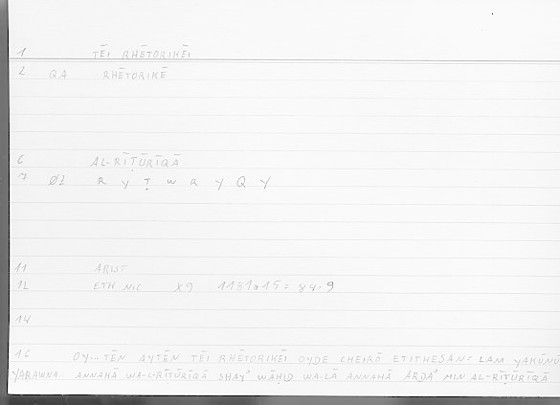 1 TĒI RHĒTORIKĒI
2 QA RHĒTORIKĒ
6 AL-RĪṬŪRĪQĀ
7 Ø1 R Y Ṭ W R Y Q Y
11 ARIST
12 ETH NIC X9 1181a15 = 84.9
14
16 OY... TĒN AYTĒN TĒI RHĒTORIKĒI OYDE CHEIRŌ ETITHESAN: LAM YAKŪNŪ
YARAWNA ANNAHĀ WA-L-RĪṬŪRĪQĀ SHAYʾ WĀḤID WA-LĀ ANNAHĀ ARDAʾ MIN AL-RĪṬŪRĪQĀ